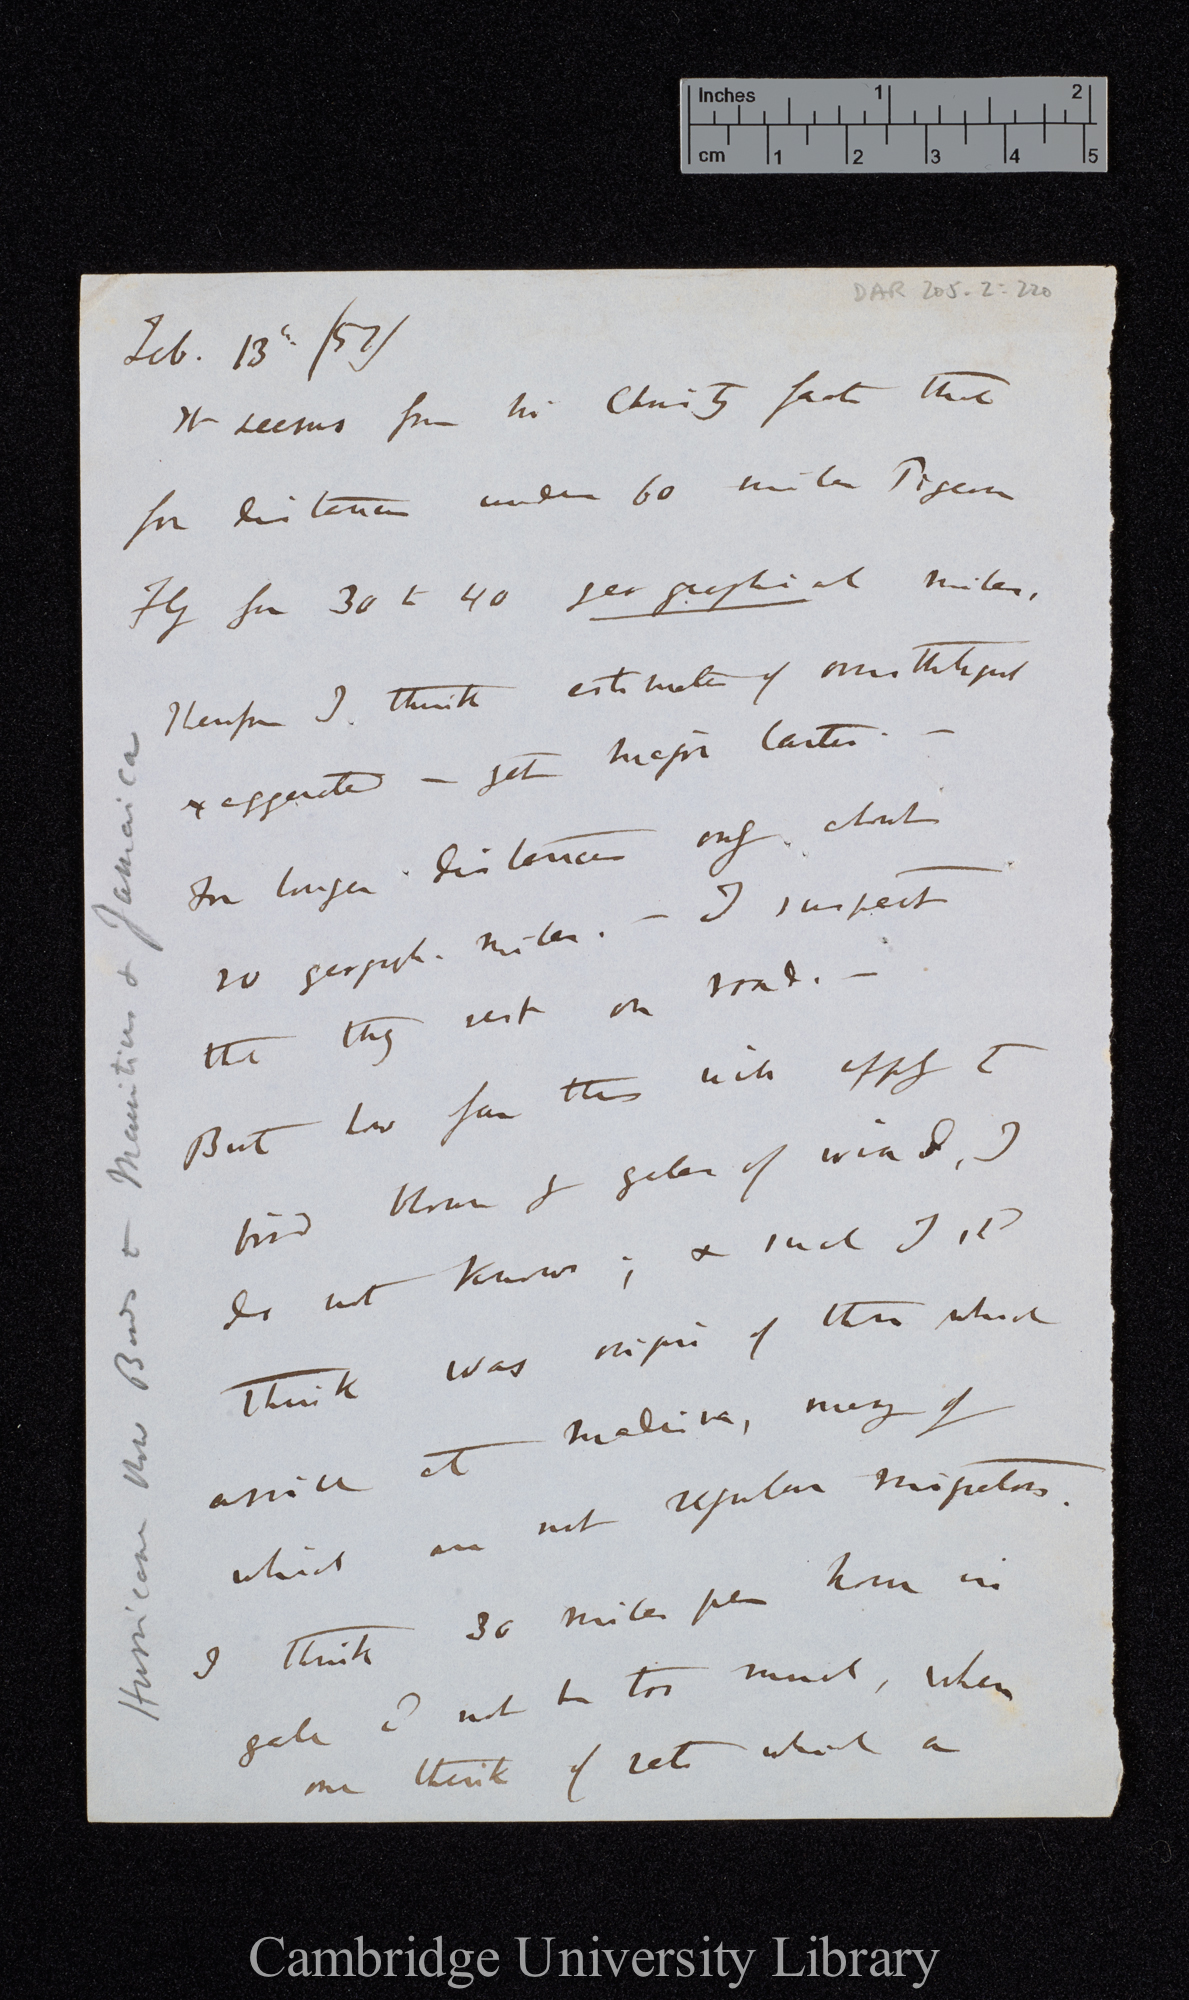 Inches 1 2
cm 1 2 3 4 5
DAR 205.2:220
Feb. 13th /57/
It seems from his Christy facts that
for distances under 60 miles Pigeons
Fly for 30 to 40 geographical miles,
I think estimates of ornithologist
exaggerated — yet major
For longer distances only about
geograph. miles. — I suspect
that they rest on road. —
But how far this will apply to
bird blown by gales of wind, I
do not know; & such I shd
think was origin of those which
arrive at Madeira, many of
which are not regular migrators.
I think 30 miles per hour in
gale not be too much, when
one think of rate which a
Hurricane blow Birds to Mauritius & Jamaica
Cambridge University Library